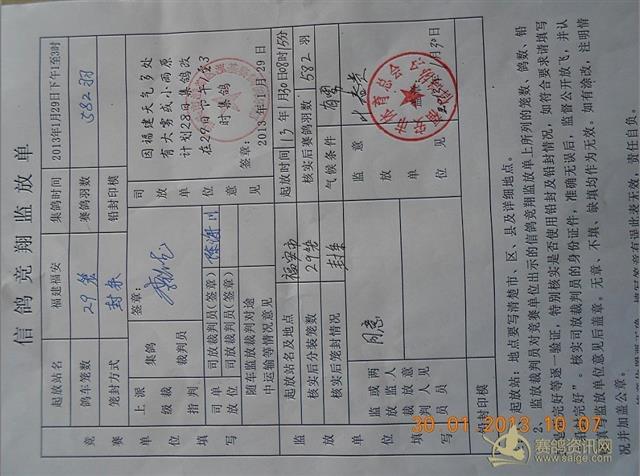 信鸽竞翔监放单
起放站名 福建福安 集鸽时间 2013年1月29日下午1至3时
鸽车笼数 29笼 赛鸽羽数 582羽
笼封方式 封条 铅封印模
竞赛单位填写
上派级裁指判
集鸽裁判员
签章:
司放单位意见
因福建天气多处
有大雾或小雨原
计划28日集鸽改
在29日下午1至3
时集鸽
签章:
2013年1月29日
司单放位
司放裁判员(签章)
司放裁判员(签章)
随车监放裁判对途
中运输等情况意见
监放单位填写
起放站名及地点 福安市 起放时间 13年1月30日08时15分
核实后分装笼数 29笼 核实后赛鸽羽数 582羽
核实后笼封情况 封条 气候条件
监或两
放监人
裁放意
判人见
员员
同意
监放单位意见
体育总会
铅封印模
起放站:地点要写清楚市、区、县及详细地点。
2、监放裁判员对竞赛单位出示的信鸽竞翔监放单上所列的笼数、鸽数、铅
完好等逐一验证,特别核实是否使用铅封及铅封情况,如符合要求请填写
完好”。核实司放裁判员的身份证件,准确无误后,监督公开放飞,并认
填写监放单位意见后盖章。无章、不填、缺填均作为无效。如有涂改,注明情
况并加盖公章。
30 01 2013 10 07
赛鸽资讯网
www.saige.com